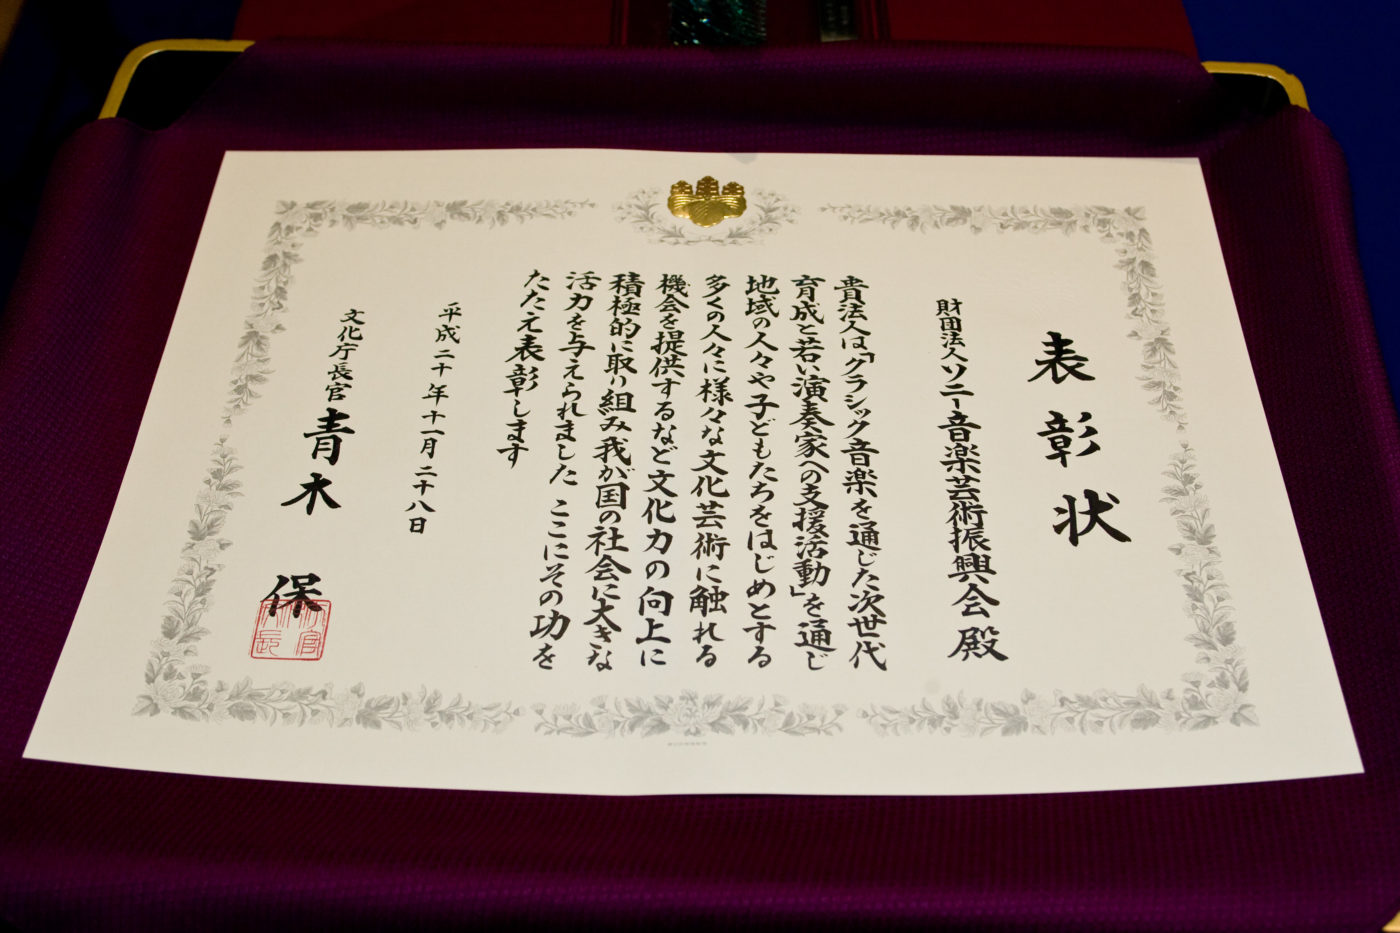 表彰状
財団法人ソニー音楽芸術振興会殿
貴法人は「クラシック音楽を通じた次世代
育成と若い演奏家への支援活動」を通じ
地域の人々や子どもたちをはじめとする
多くの人々に様々な文化芸術に触れる
機会を提供するなど文化力の向上に
積極的に取り組み我が国の社会に大きな
活力を与えられました ここにその功を
たたえ表彰します
平成二十年十一月二十八日
文化庁長官 青木 保